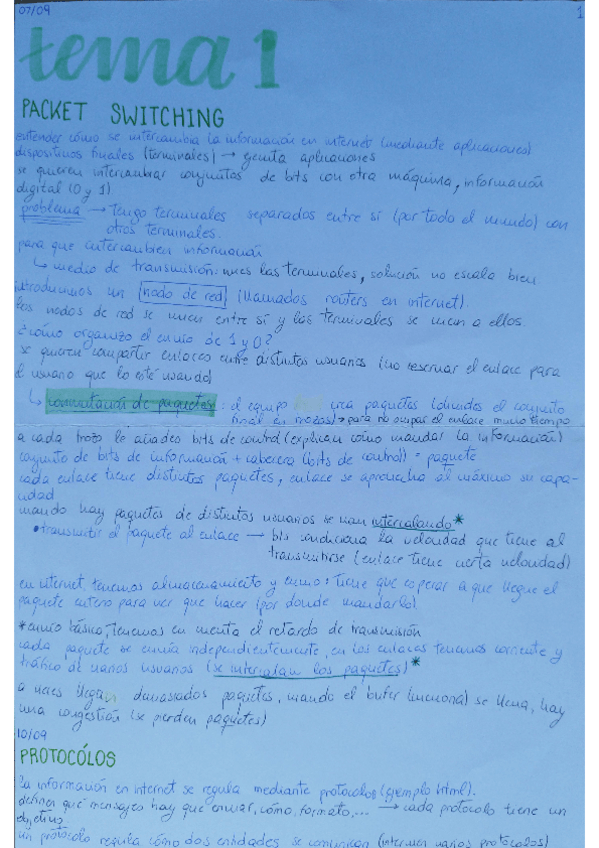 07/09
1
tema 1
PACKET SWITCHING
entender cómo se intercambia la información en internet (mediante aplicaciones)
dispositivos finales (terminales) → aplicaciones
se quieren intercambiar conjuntos de bits con otra máquina, información
digital (0 y 1)
problema → Tengo terminales separados entre sí (por todo el mundo) con
otros terminales.
para que intercambien información
↳ medio de transmisión: unes las terminales, solución no escala bien.
introducimos un nodo de red (llamados routers en internet).
los nodos de red se unen entre sí y los terminales se unen a ellos.
¿cómo organizo el envío de 1 y 0?
se quieren compartir enlaces entre distintos usuarios (no reservar el enlace para
el usuario que lo esté usando)
↳ conmutación de paquetes: el equipo crea paquetes (divides el conjunto
final en trozos) → para no ocupar el enlace mucho tiempo
a cada trozo le añades bits de control (explican cómo mandar la información)
conjunto de bits de información + cabecera (bits de control) = paquete
cada enlace tiene distintos paquetes, enlace se aprovecha al máximo su capa-
cidad
cuando hay paquetes de distintos usuarios se van intercalando*
• transmitir el paquete al enlace → bits condiciona la velocidad que tiene al
transmitirse (enlace tiene cierta velocidad)
en internet tenemos almacenamiento y envío: tiene que esperar a que llegue el
paquete entero para ver que hacer (por donde mandarlo).
*envío básico, tenemos en cuenta el retardo de transmisión
cada paquete se envía independientemente, en los enlaces tenemos corriente y
tráfico de varios usuarios (se intercalan los paquetes)*
a veces llegan demasiados paquetes, cuando el bufer (memoria) se llena, hay
una congestión (se pierden paquetes)
10/09
PROTOCÓLOS
la información en internet se regula mediante protocolos (ejemplo html).
definen qué mensajes hay que enviar, cómo, formato,... → cada protocolo tiene un
objetivo
un protocolo regula cómo dos entidades se comunican (intervienen varios protocolos)